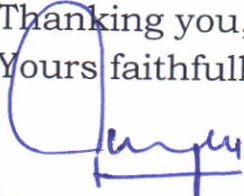 Thanking you,
Yours faithfull